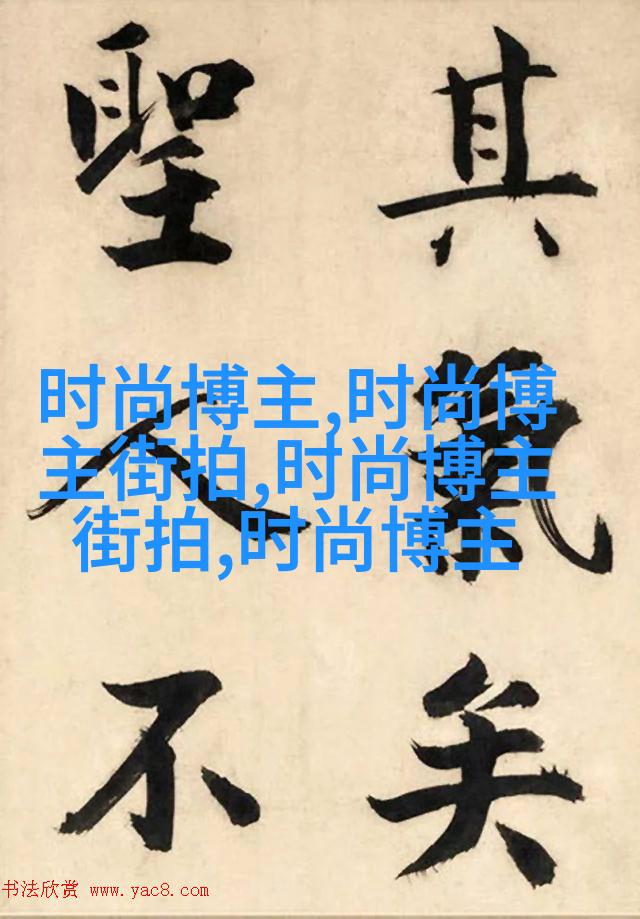 其
矣
聖人不
时尚博主,时尚博
主街拍,时尚博主
街拍,时尚博主
书法欣赏 www.yac8.com